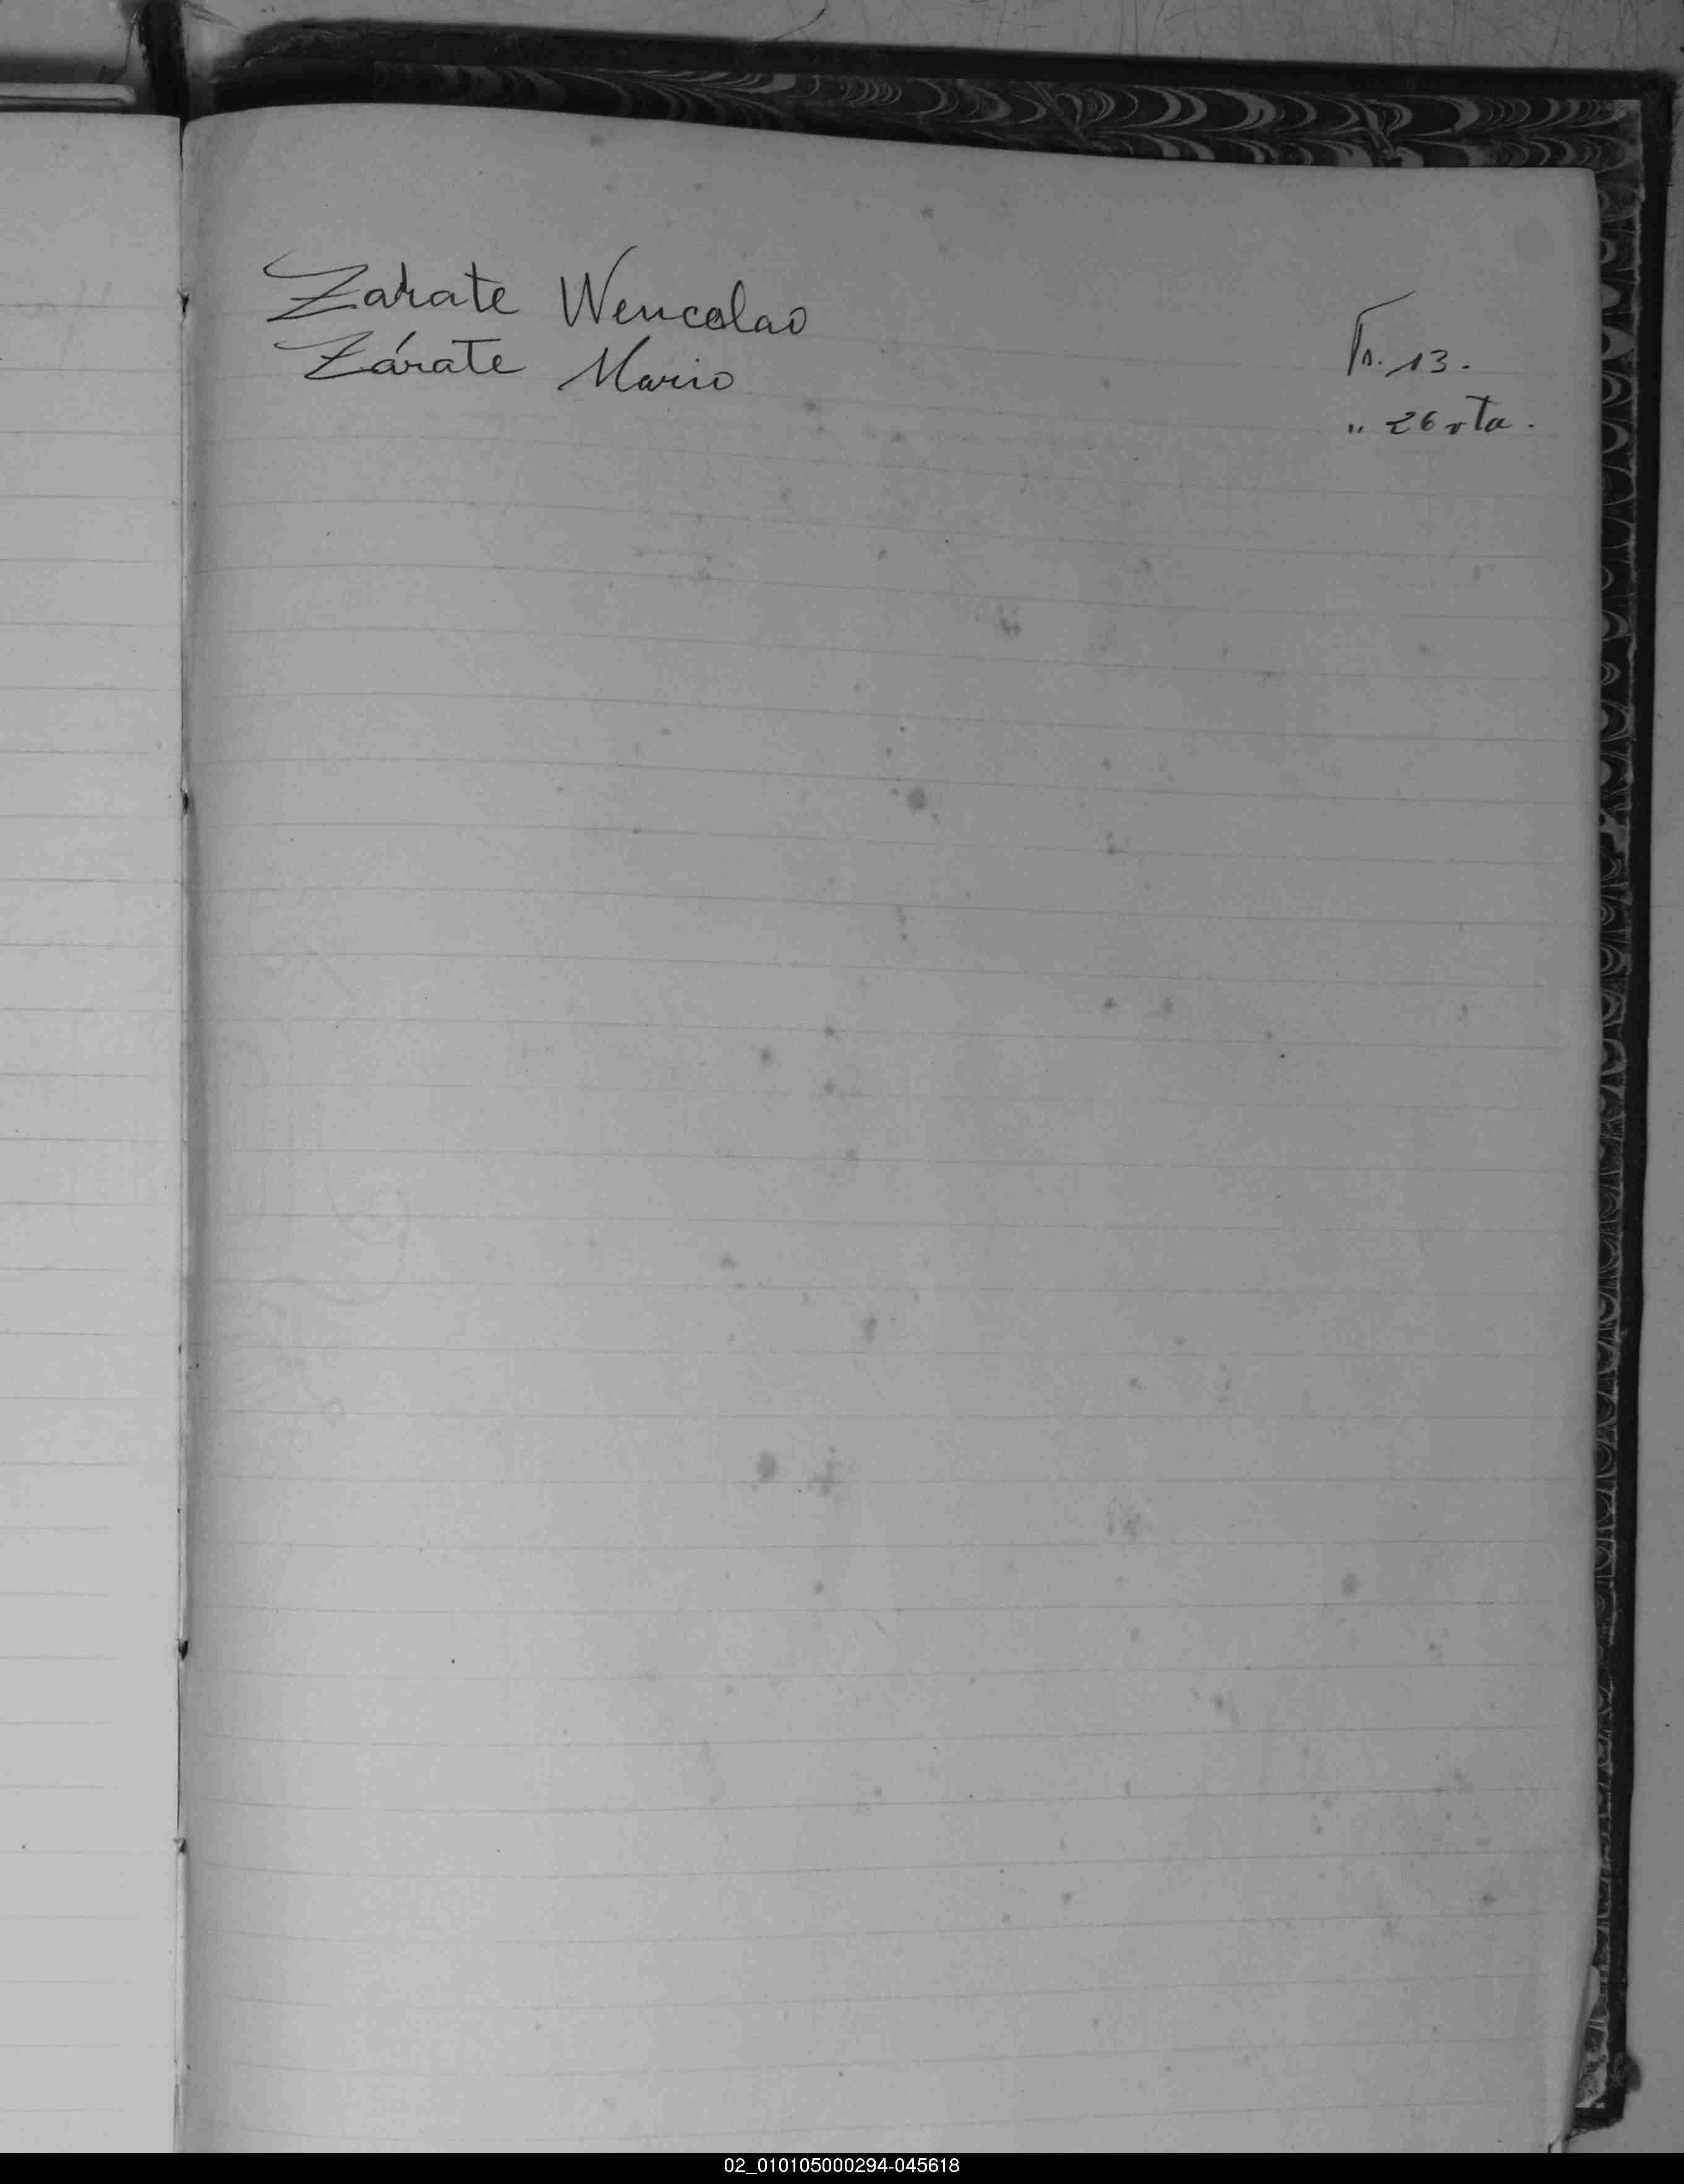 Zarate Wencolao Fs. 13.
Zárate Mario " 26 vta.
02_010105000294-045618